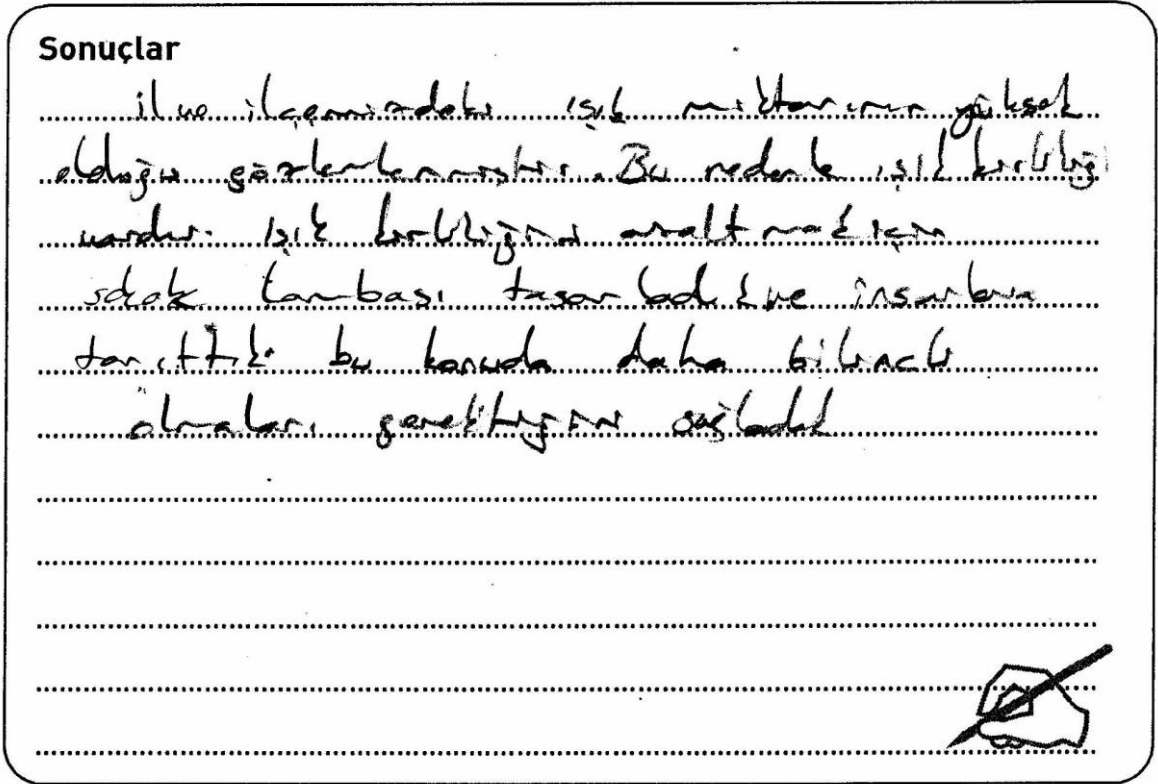 Sonuçlar
il ve ilçemizdeki ışık miktarının yüksek
olduğu gözlemlenmiştir. Bu nedenle ışık kirliliği
vardır. Işık kirliliğini azaltmak için
sokak lambası tasarladık ve insanlara
tanıttık. bu konuda daha bilinçli
olmaları gerektiğini sağladık